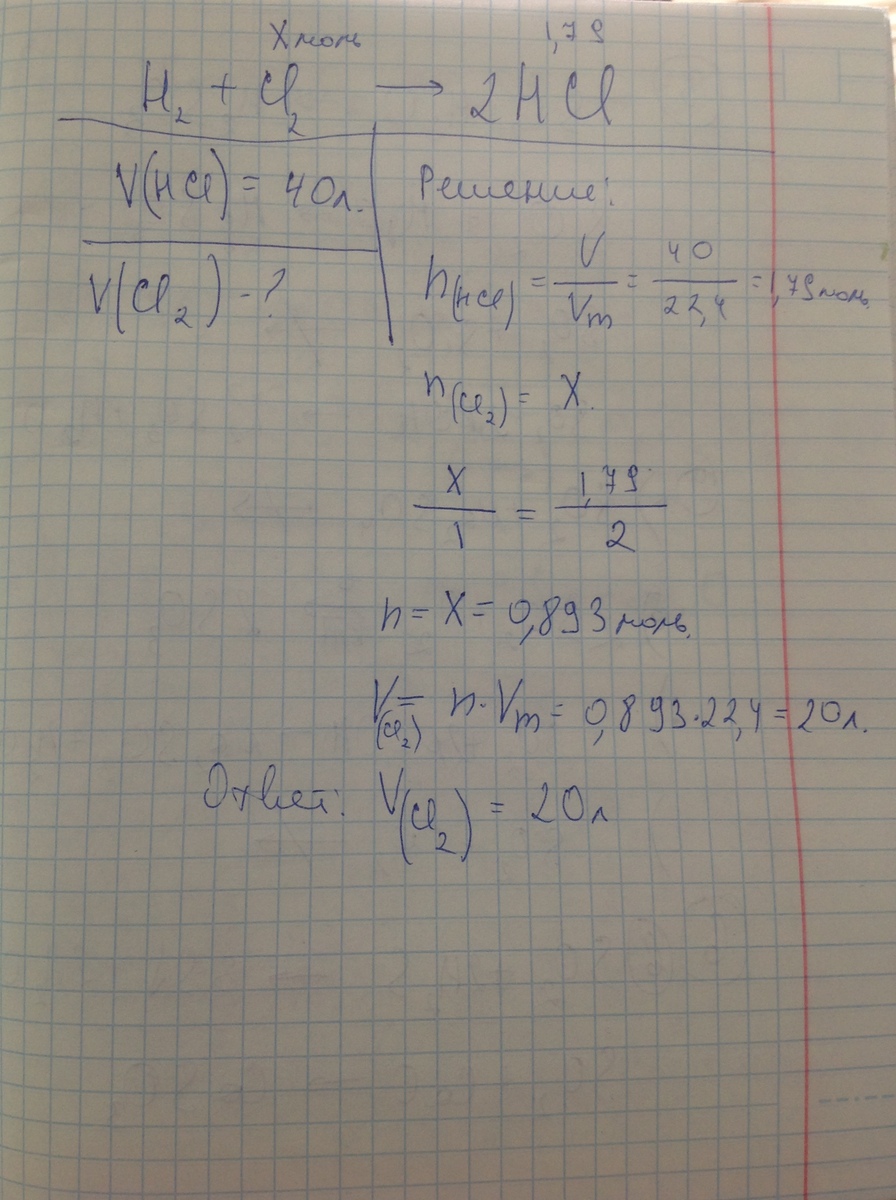 X моль 1,79
H₂ + Cl₂ → 2HCl
V(HCl) = 40л.
V(Cl₂) - ?
Решение:
n(HCl) = V/Vm = 40/22,4 = 1,79моль
n(Cl₂) = X.
X/1 = 1,79/2
n = X = 0,893 моль.
V(Cl₂) = n·Vm = 0,893·22,4 = 20л.
Ответ: V(Cl₂) = 20л